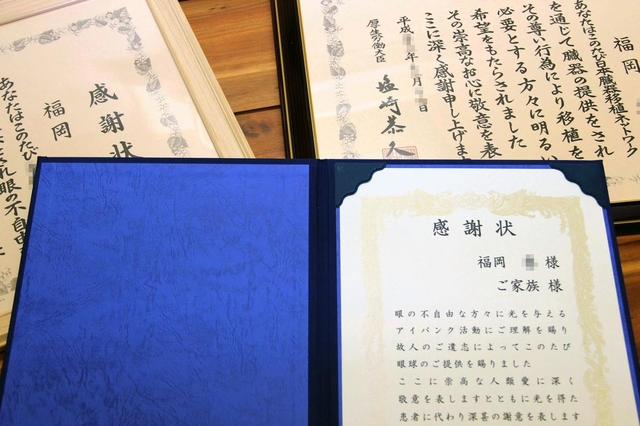 感謝状
福岡 様
ご家族 様
眼の不自由な方々に光を与える
アイバンク活動にご理解を賜り
故人のご遺志によってこのたび
眼球のご提供を賜りました
ここに崇高な人類愛に深く
敬意を表しますとともに光を得た
患者に代わり深甚の謝意を表します
福岡
あなたはこのたび日本臓器移植ネットワーク
を通じて臓器の提供をされ
その尊い行為により移植を
必要とする方々に明るい
希望をもたらされました
その崇高なお心に敬意を表し
ここに深く感謝申し上げます
平成 年 月 日
厚生労働大臣
塩崎恭久
感謝状
福岡
あなたはこのたび
され眼の不自由